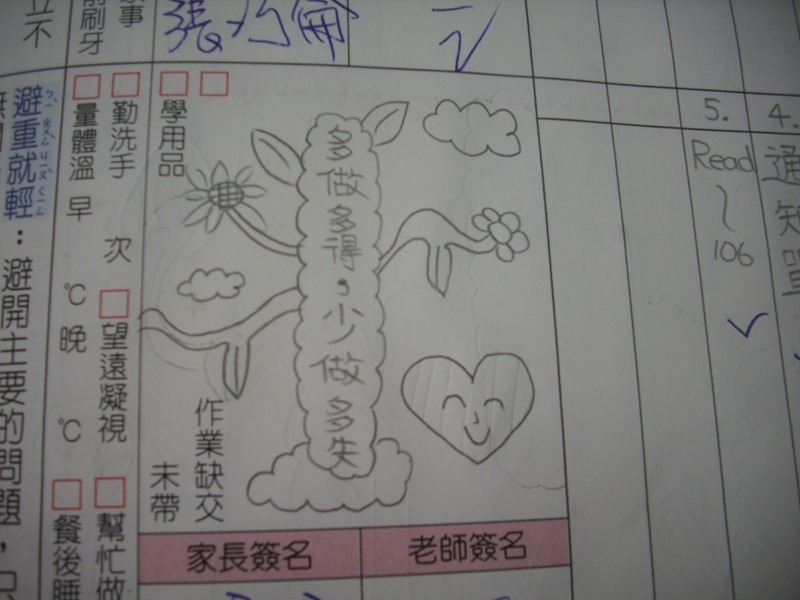 5.
4.
Read
~
106
通
知
單
多做多得,少做多失
學用品
作業缺交
未帶
勤洗手
次
望遠凝視
幫忙做
量體溫 早
℃ 晚
℃
餐後
前刷牙
家事
避重就輕:避開主要的問題,只
家長簽名
老師簽名